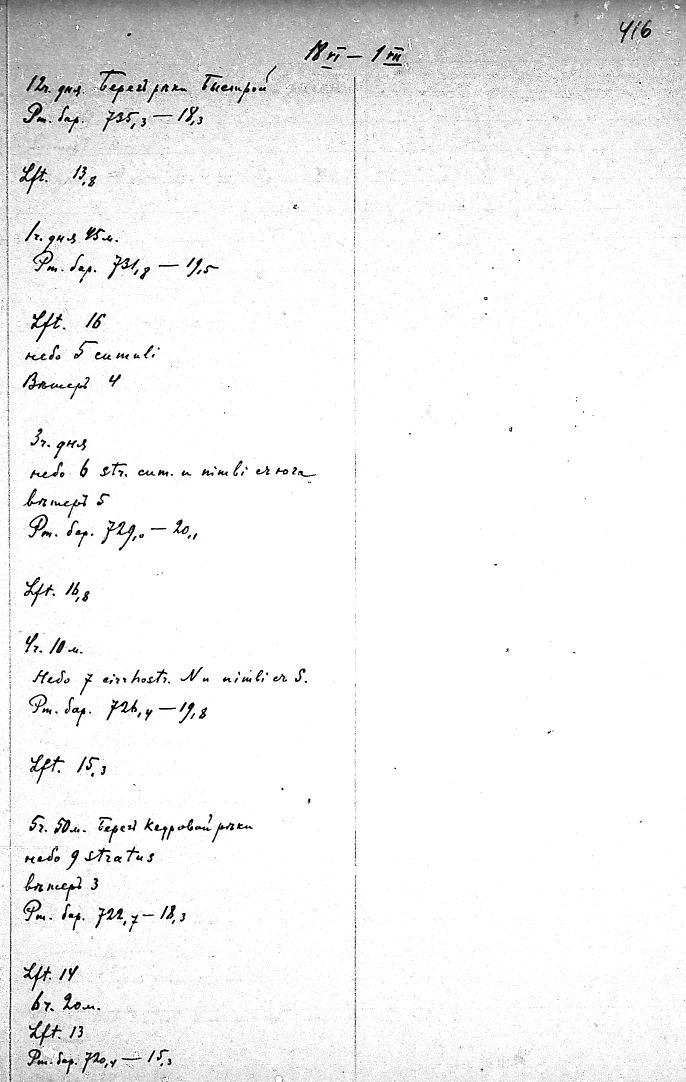 416
18 VI — 1 VII
12 ч. дня. Берегъ рѣки Быстрой
Рт. бар. 735,3 — 18,3
Lft. 13,8
1 ч. дня 45 м.
Рт. бар. 731,8 — 19,5
Lft. 16
небо 5 cumuli
Вѣтеръ 4
3 ч. дня
небо 6 str. cum. и nimbi съ юга
вѣтеръ 5
Рт. бар. 729,0 — 20,1
Lft. 16,8
4 ч. 10 м.
Небо 7 cirrhostr. N и nimbi съ S.
Рт. бар. 726,4 — 19,8
Lft. 15,3
5 ч. 50 м. Берегъ Кедровой рѣки
небо 9 stratus
вѣтеръ 3
Рт. бар. 722,7 — 18,3
Lft. 14
6 ч. 20 м.
Lft. 13
Рт. бар. 720,4 — 15,3